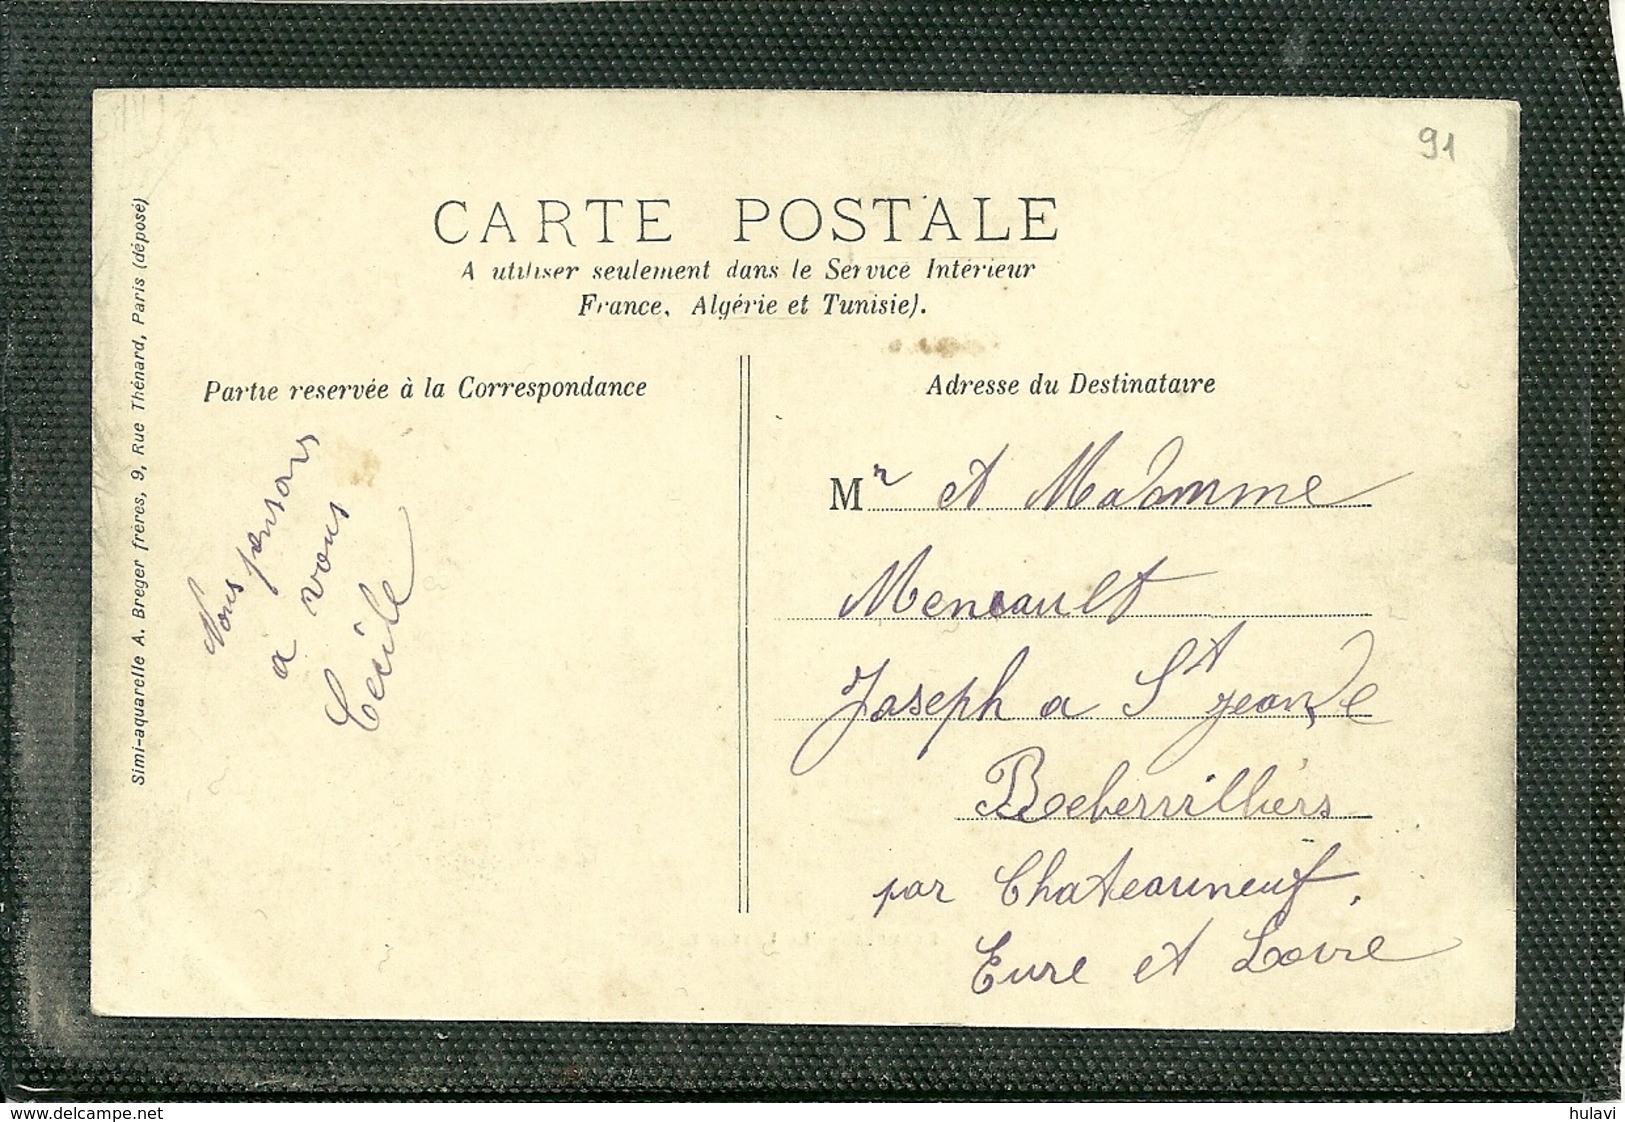 91
CARTE POSTALE
A utiliser seulement dans le Service Intérieur
France, Algérie et Tunisie).
Partie reservée à la Correspondance
Adresse du Destinataire
Simi-aquarelle A. Breger frères, 9, Rue Thénard, Paris (déposé)
Nous pensons
a vous
Cecile
Mr et Madamme
Meneault
Joseph a St jean de
Rebervilliers
par Chateauneuf.
Eure et Loire
www.delcampe.net
hulavi